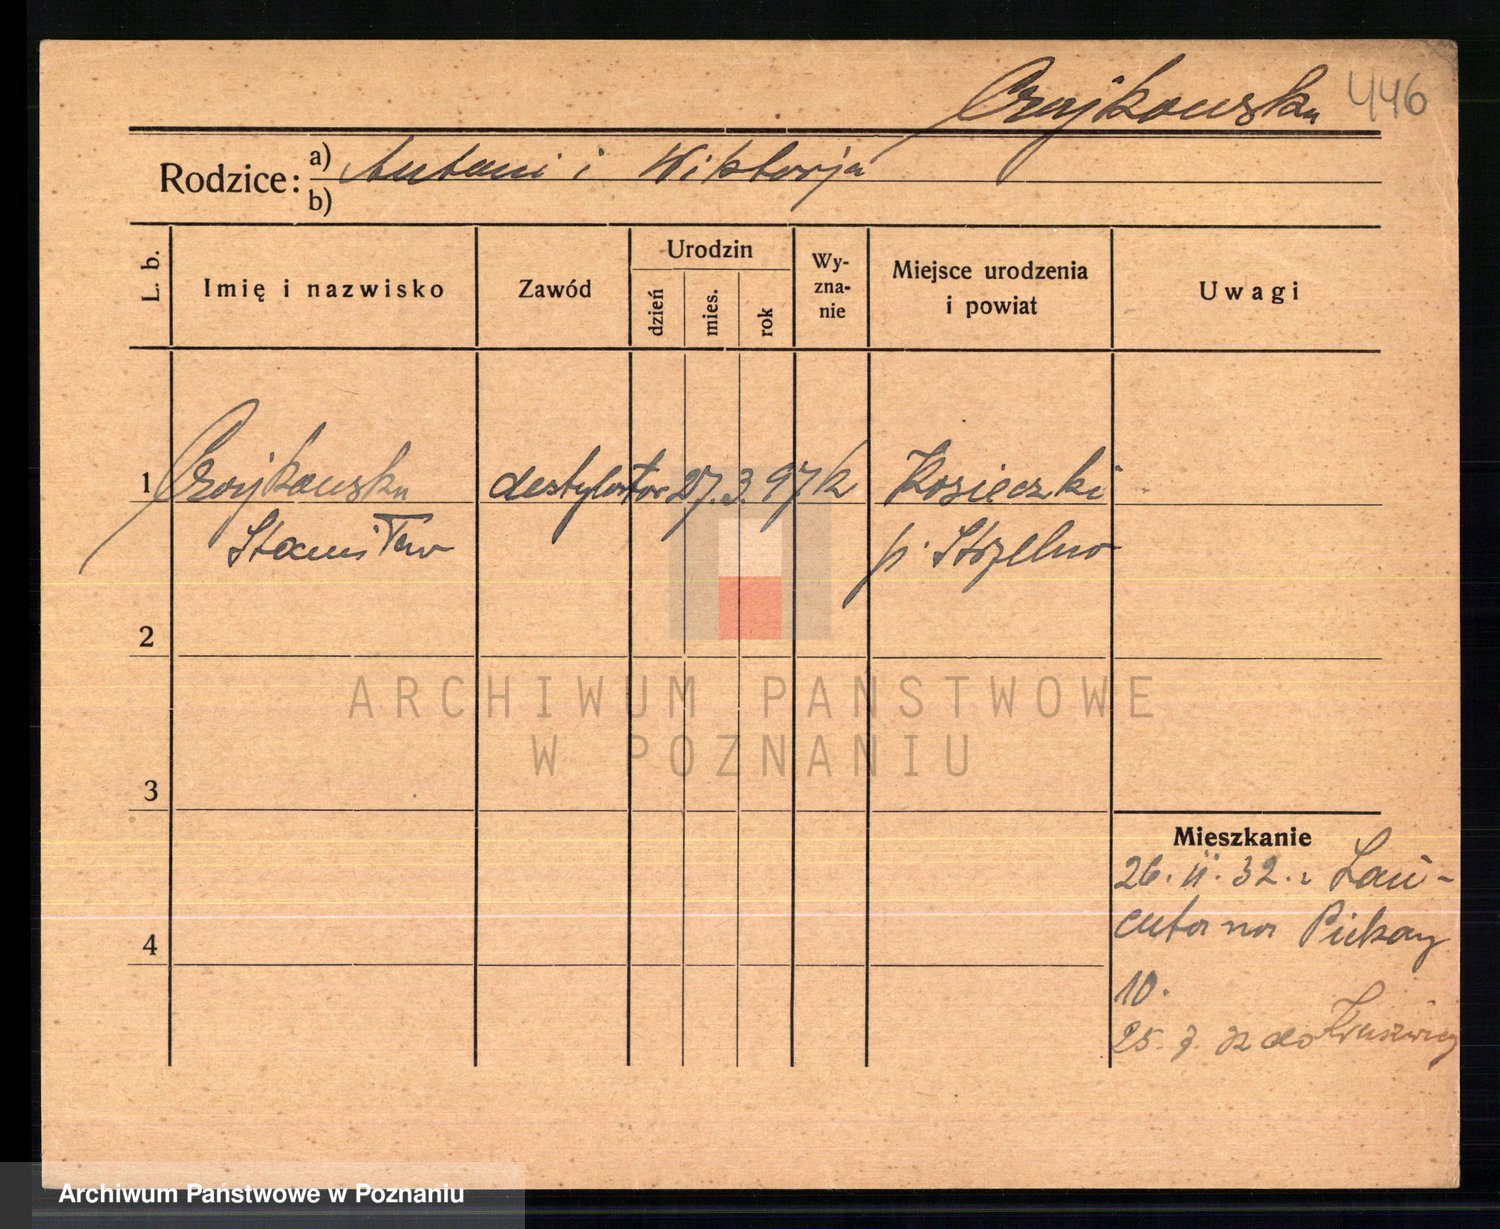 Czajkowski 446
Rodzice: a) Antoni i Wiktorja
b)
L. b. Imię i nazwisko Zawód Urodzin dzień mies. rok Wy-zna-nie Miejsce urodzenia i powiat Uwagi
1 Czajkowski destylator 27. 3. 97. k Kosieczki
Stanisław p. Strzelno
2
ARCHIWUM PAŃSTWOWE
W POZNANIU
3
Mieszkanie
26. II. 32. z Łań-
cuta na Piekary
4
10.
25. 7. 32 do Kruszwicy
Archiwum Państwowe w Poznaniu